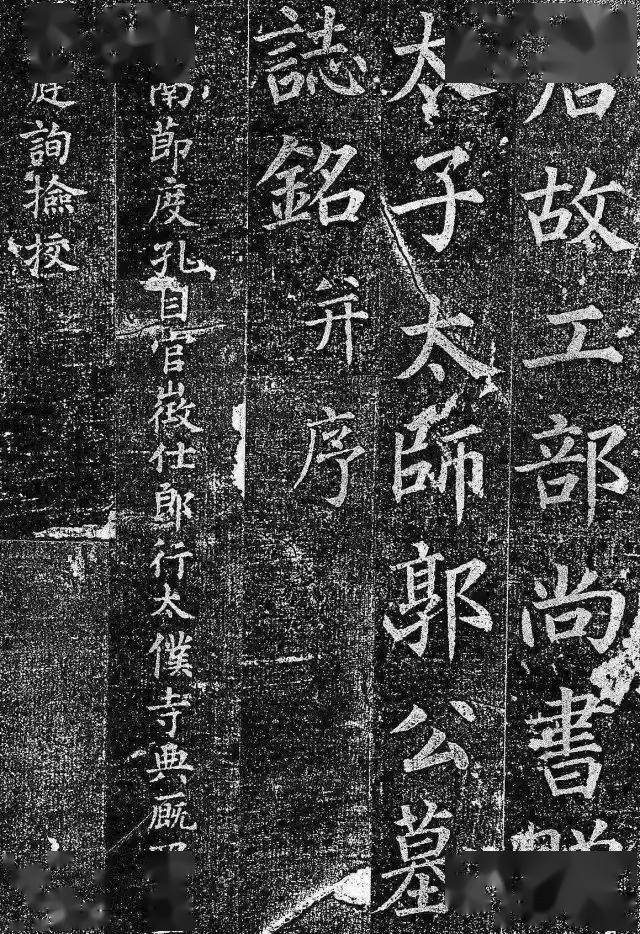 故工部尚書
太子太師郭公墓
誌銘并序
南節度孔目官徵仕郎行太僕寺典廐
詢撿挍